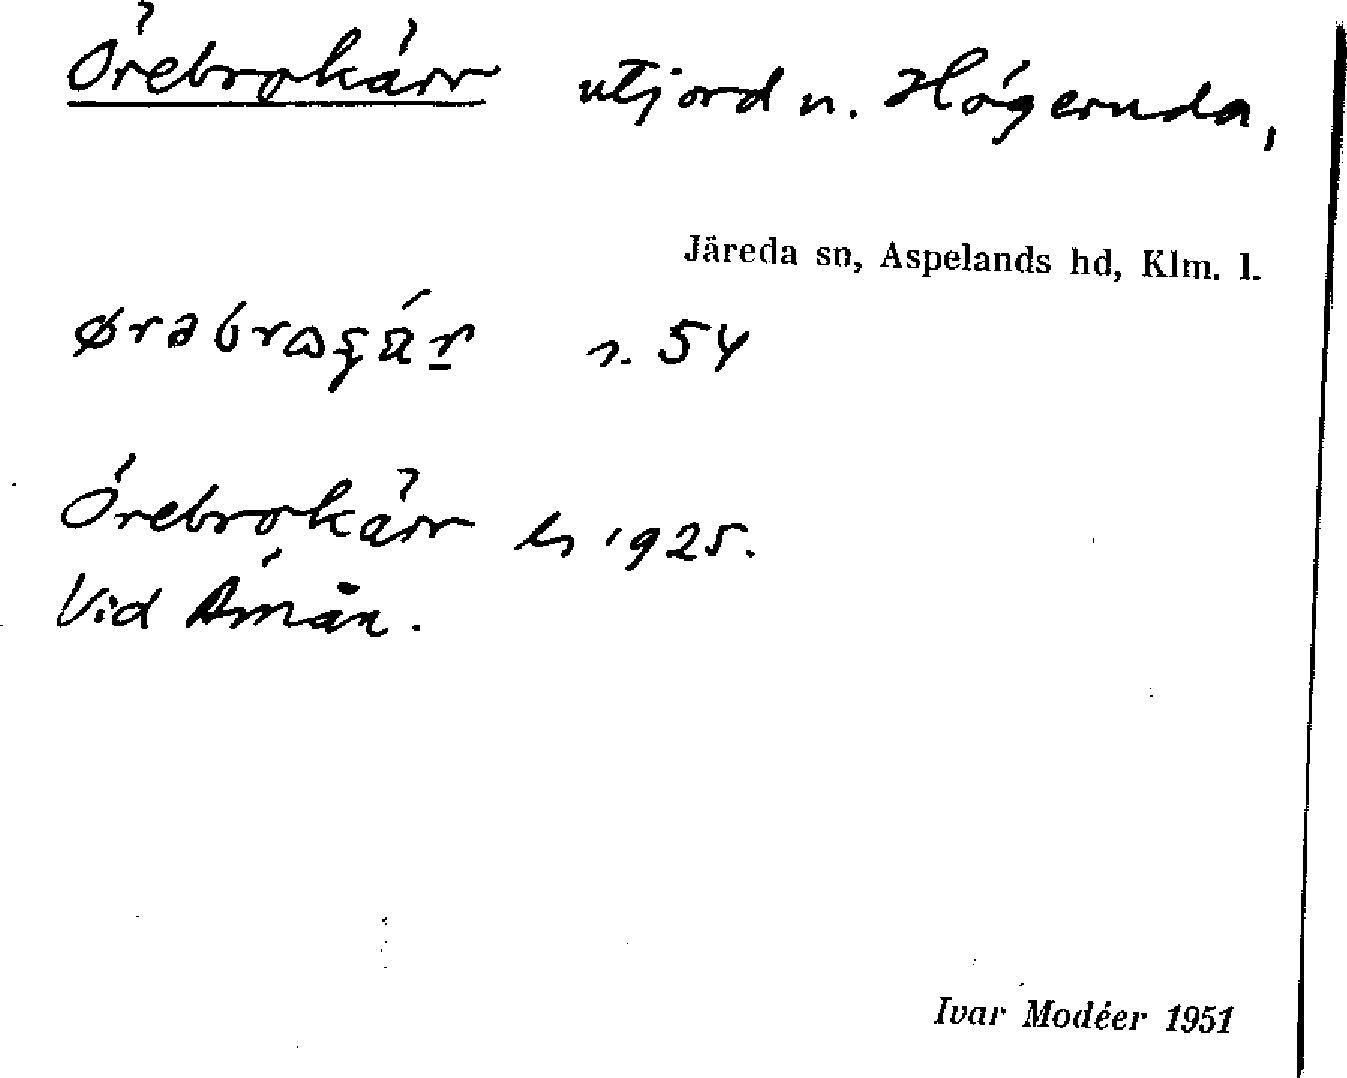 Örebrokärr utjord n. Högeruda,
Järeda sn, Aspelands hd, Klm. l.
s. 54
Örebrokärr 1925.
Vid Åmån.
Ivar Modéer 1951